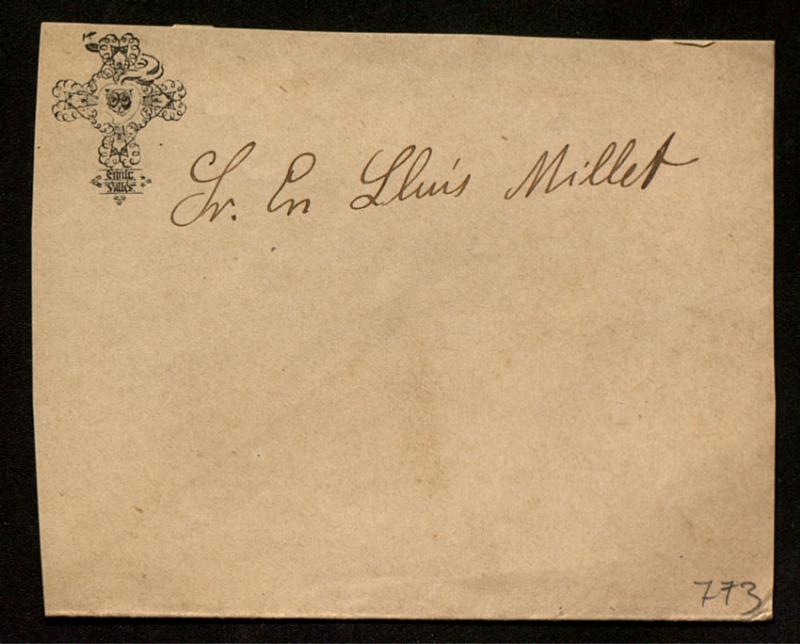 Emili Vilas
Sr. En Lluis Millet
773